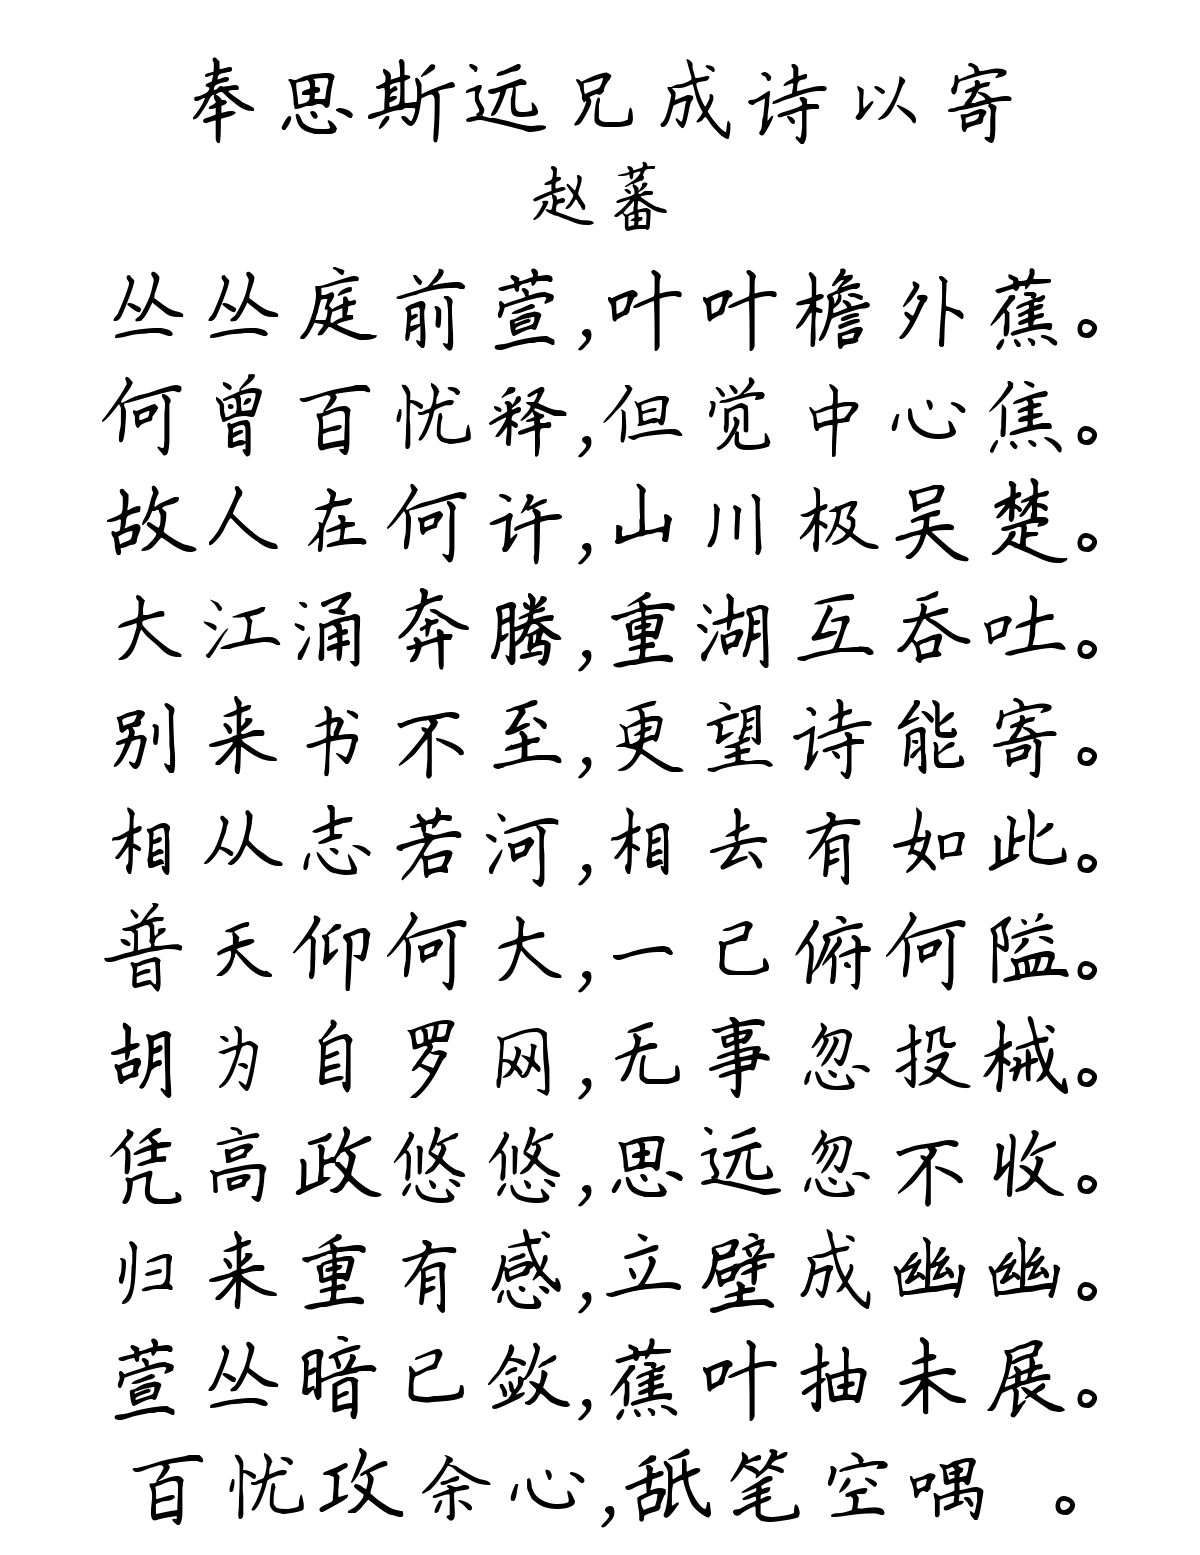 奉思斯远兄成诗以寄
赵蕃
丛丛庭前萱,叶叶檐外蕉。
何曾百忧释,但觉中心焦。
故人在何许,山川极吴楚。
大江涌奔腾,重湖互吞吐。
别来书不至,更望诗能寄。
相从志若河,相去有如此。
普天仰何大,一己俯何隘。
胡为自罗网,无事忽投械。
凭高政悠悠,思远忽不收。
归来重有感,立壁成幽幽。
萱丛暗已敛,蕉叶抽未展。
百忧攻余心,舐笔空喁 。